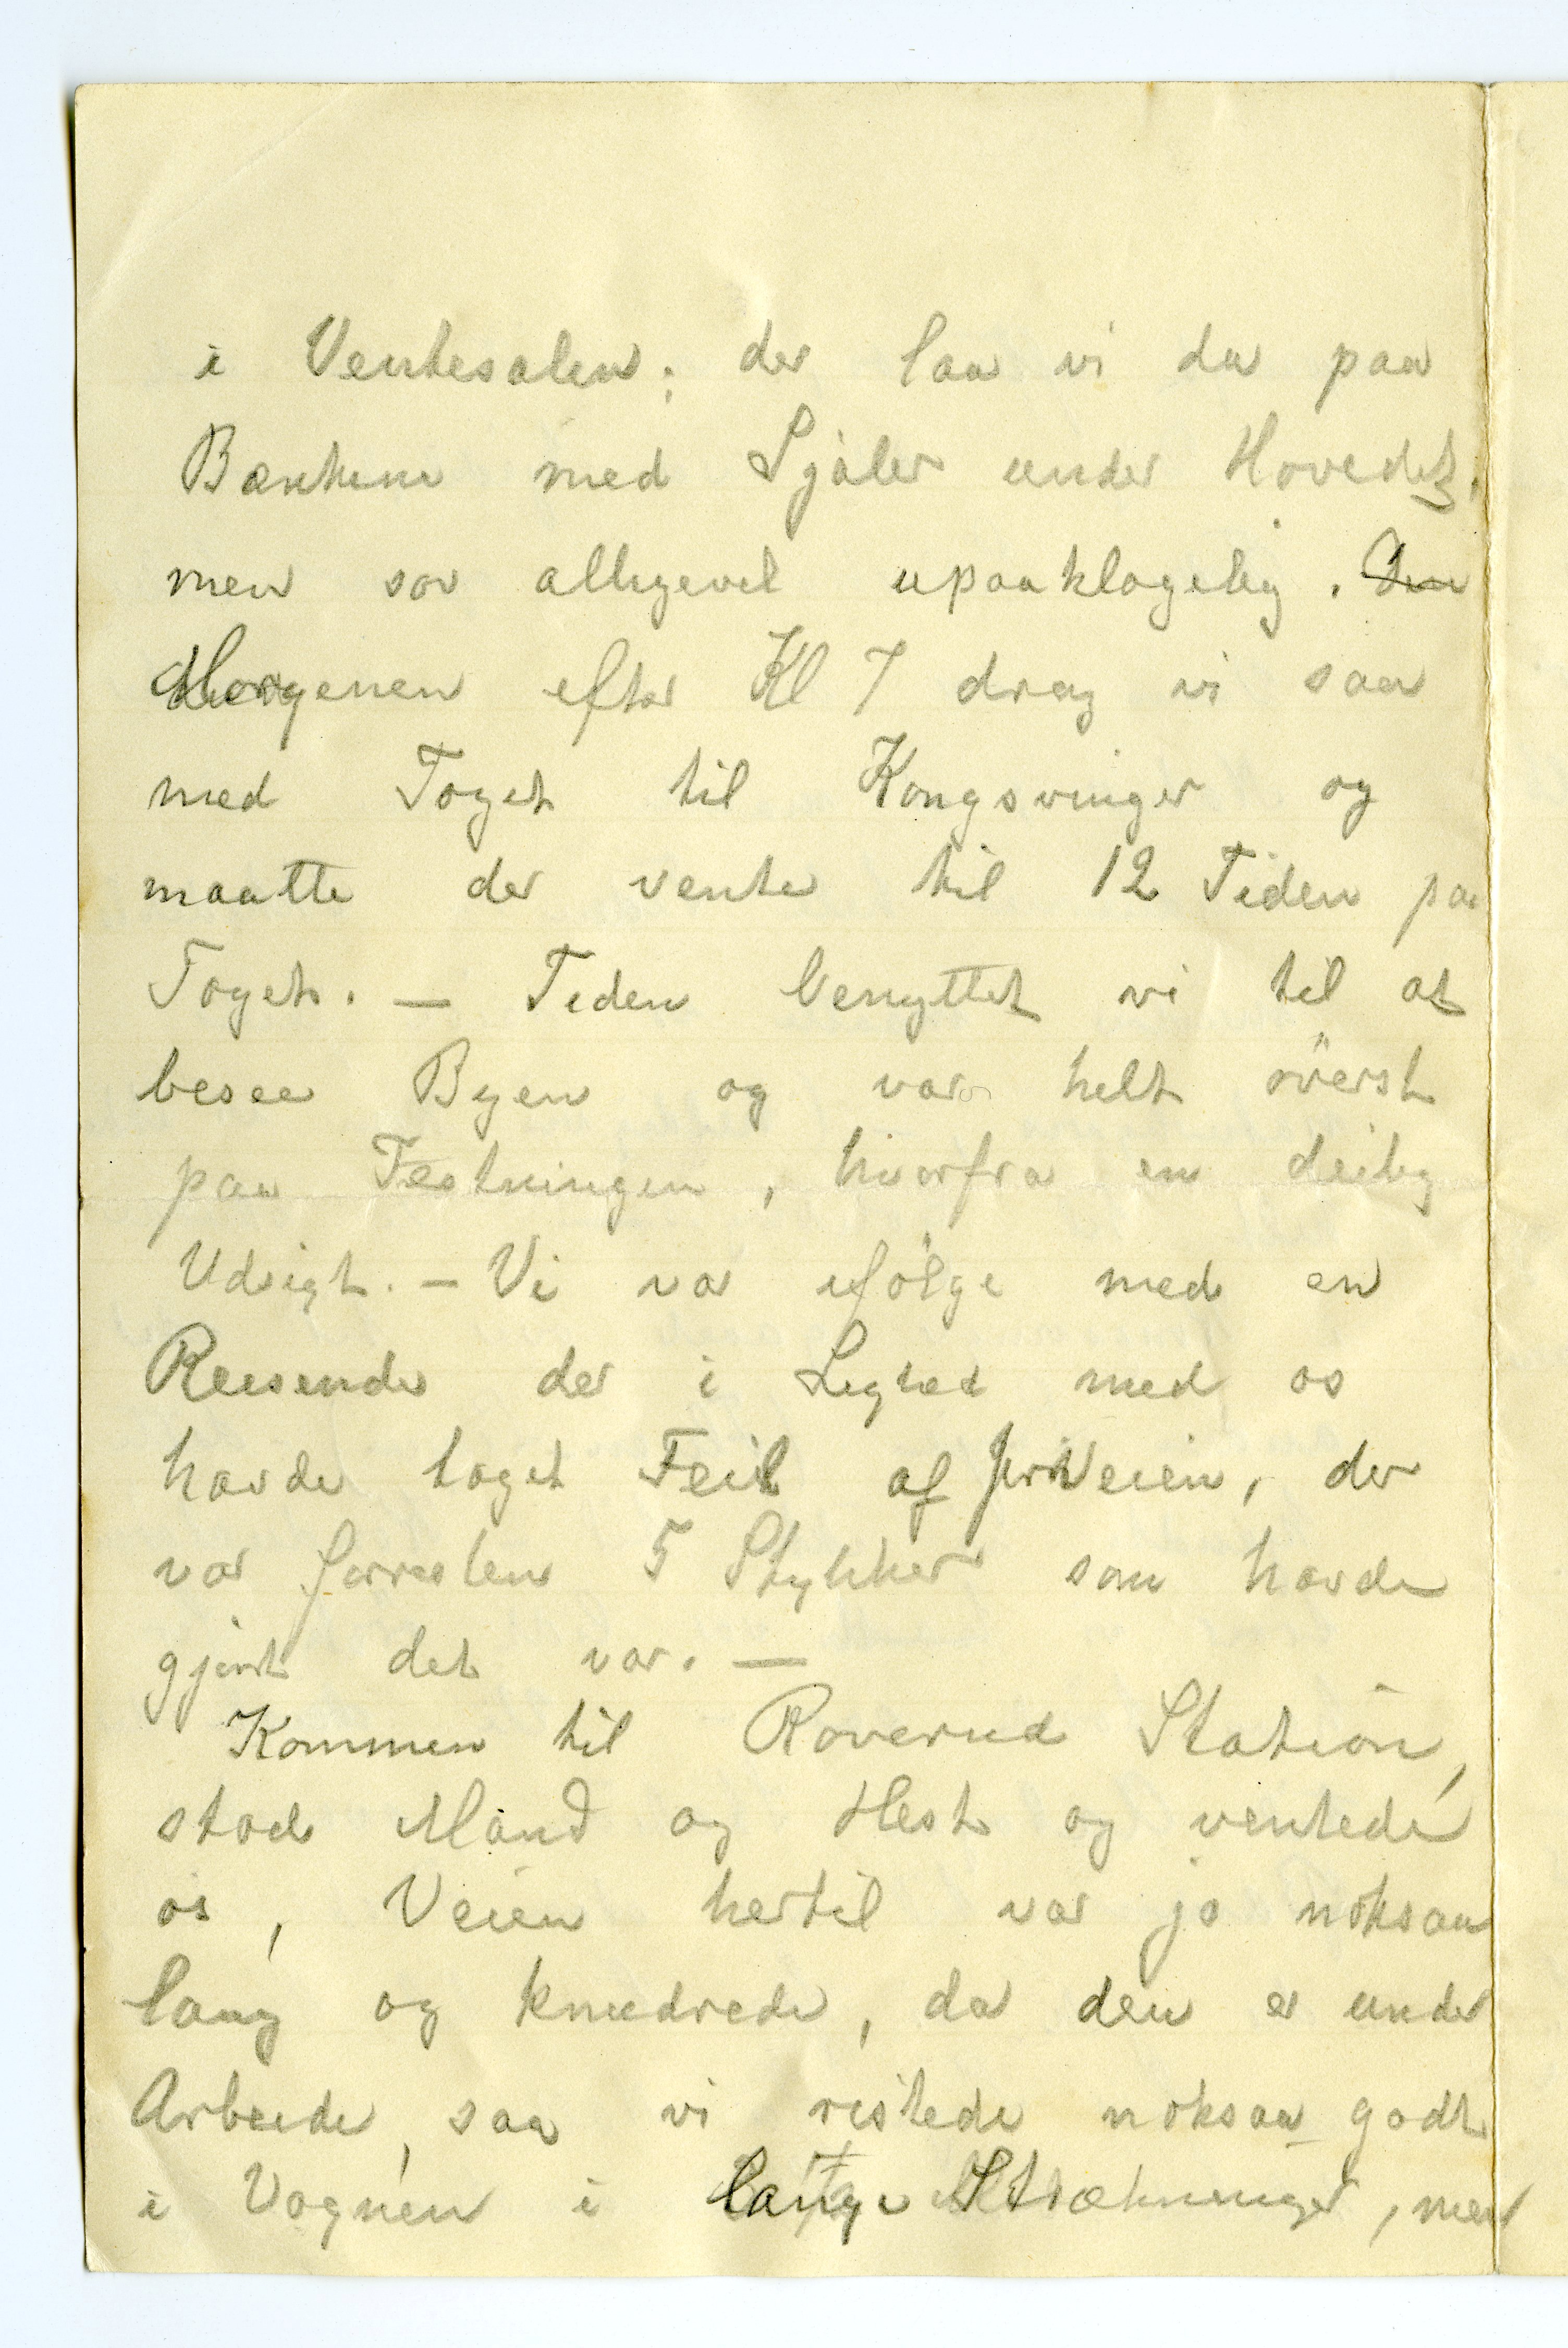 i Ventesalen; der laa vi da paa
Bænkene med Sjåler under Hovedet,
men sov alligevel upaaklagelig. Den
Morgenen efter Kl 7 drog vi saa
med Toget til Kongsvinger og
maatte der vente til 12 Tiden paa
Toget. — Tiden benyttet vi til at
besee Byen og var helt överst
paa Festningen, hvorfra en deilig
Udsigt. — Vi var ifölge med en
Reisende der i Lighed med os
havde taget Feil af Jernveien, der
var forresten 5 Stykker som havde
gjort det var. —
Kommen til Roverud Station,
stod Mand og Hest og ventede
os, Veien hertil var jo noksaa
lang og knudrede, da den er under
Arbeide, saa vi ristede noksaa godt
i Vognen i lange Strækninger, men